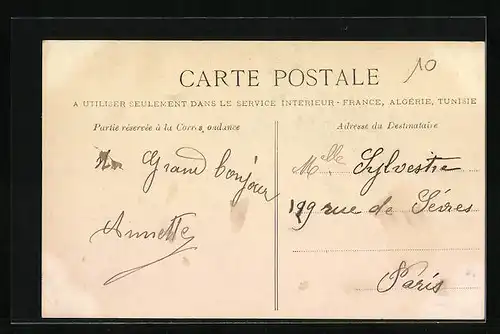 10
CARTE POSTALE
A UTILISER SEULEMENT DANS LE SERVICE INTERIEUR - FRANCE, ALGÉRIE, TUNISIE
Partie réservée à la Correspondance
Un Grand bonjour
Annette
Adresse du Destinataire
Melle Sylvestre
199 rue de Sévres
Paris